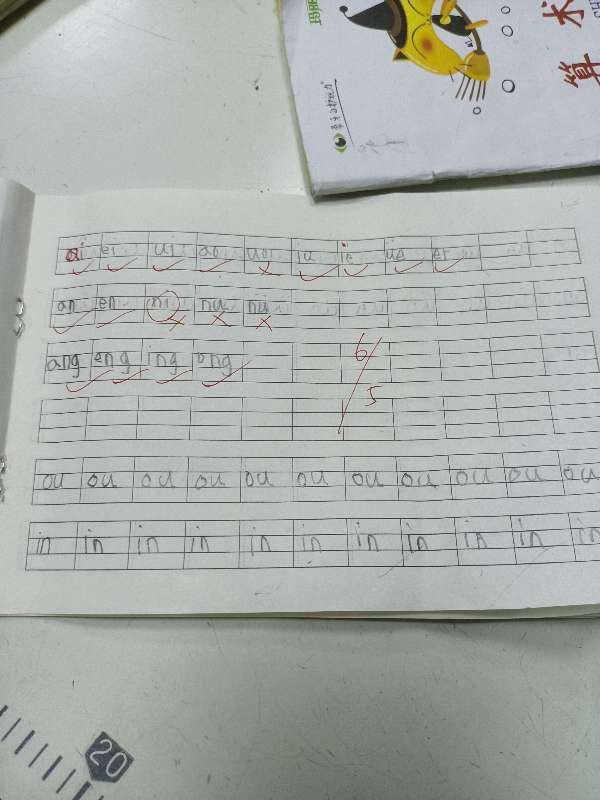 算 术
ai ei ui ao uo iu ie üe er
an en ni nu nü
ang eng ing ong
6/5
ou ou ou ou ou ou ou ou ou ou ou
in in in in in in in in in in in
20